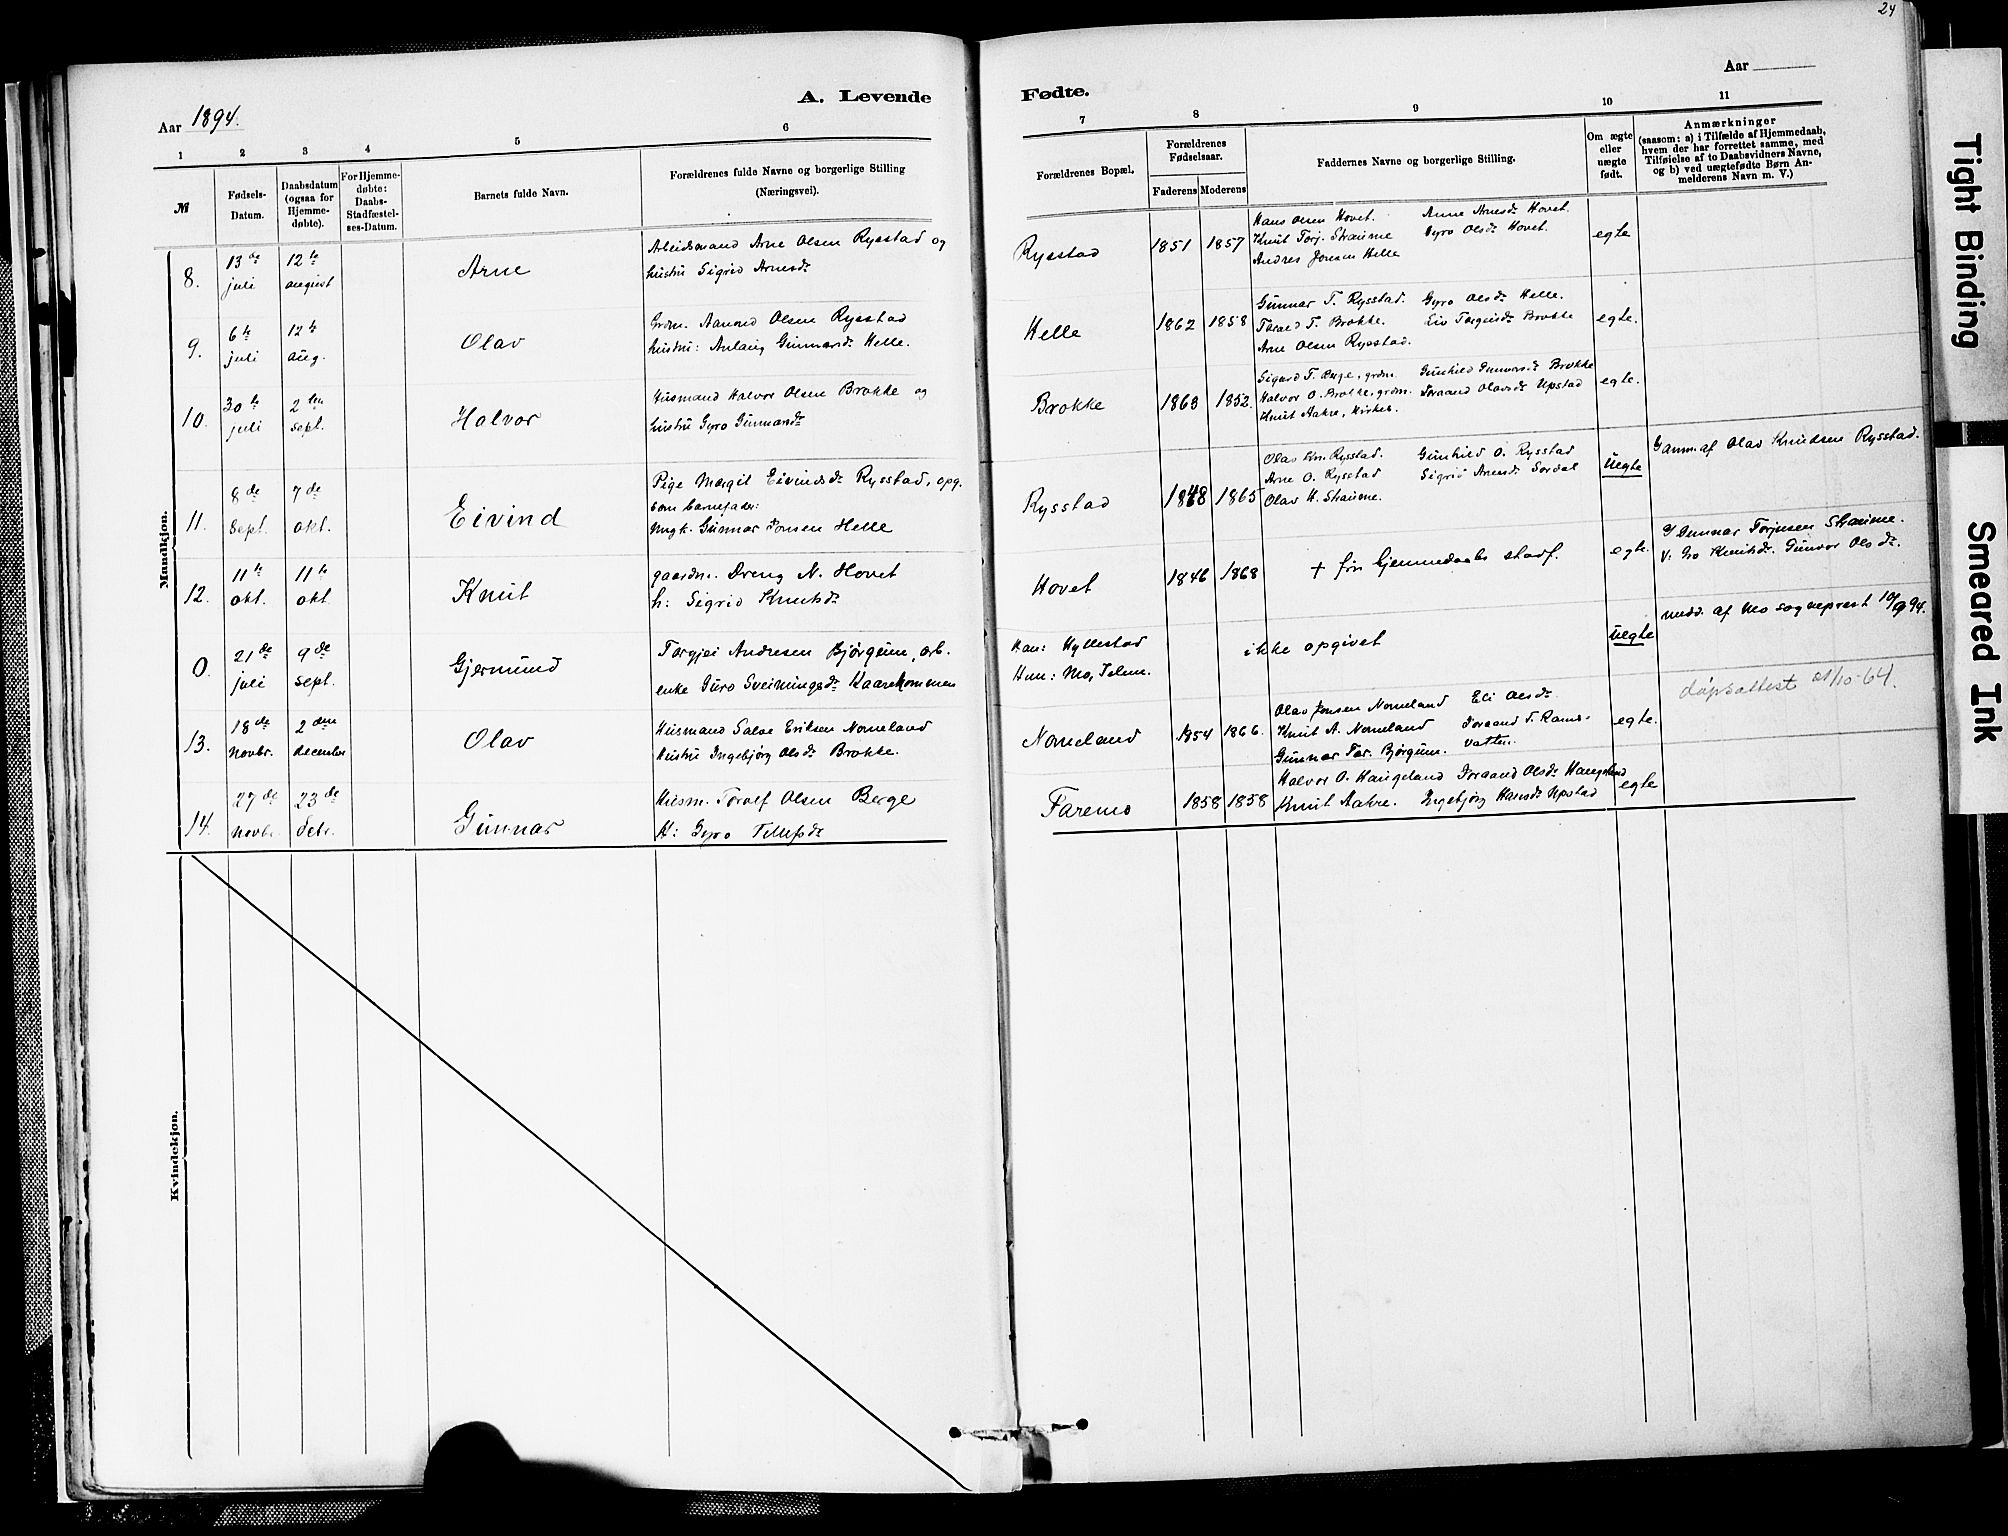 24
Aar 1894.
A. Levende
Fødte.
Aar
1 2 3 4 5 6
7 8 9 10 11
№
Fødsels-Datum.
Daabsdatum (ogsaa for Hjemme-døbte).
For Hjemme-døbte: Daabs-Stadfæstel-ses-Datum.
Barnets fulde Navn.
Forældrenes fulde Navne og borgerlige Stilling
(Næringsvei).
Forældrenes Bopæl.
Forældrenes Fødselsaar.
Faderens Moderens
Faddernes Navne og borgerlige Stilling.
Om ægte eller uægte født.
Anmærkninger
(saasom: a) i Tilfælde af Hjemmedaab,
hvem der har forrettet samme, med
Tilføielse af to Daabsvidners Navne,
og b) ved uægtefødte Børn An-
melderens Navn m. V.)
Mandkjøn.
8. 13de juli 12te august Arne
Arbeidsmand Arne Olsen Rysstad og
hustru Sigrid Arnesdr
Rysstad 1851 1857
Hans Olsen Hovet. Anne Arnesdr Hovet.
Knut Torj. Straume Gyro Olsdr Hovet.
Andres Jonsen Helle
egte
9. 6te juli 12te aug. Olav
Grdm. Aanund Olsen Rysstad
hustru: Anlaug Gunnarsdr Helle.
Helle 1862 1858
Gunnar T. Rysstad. Gyro Olsdr Helle.
Tarald T. Brokke. Liv Torgeirsdr Brokke
Arne Olsen Rysstad.
egte.
10. 30te juli 2den sept. Halvor
Husmand Halvor Olsen Brokke og
hustru Gyro Gunnarsdr
Brokke 1863 1852.
Sigurd T. Berge, grdm. Gunhild Gunnarsdr Brokke
Halvor O. Brokke, grdm. Joraand Olavsdr Upstad
Knut Aakre, kirkes.
egte.
11. 8de sept. 7de okt. Eivind
Pige Margit Eivindsdr Rysstad, opg.
som barnefader:
Ungk. Gunnar Jonsen Helle
Rysstad 1848 1865
Olav Kn. Rysstad. Gunhild O. Rysstad
Arne O. Rysstad Sigrid Arnesdr Sordal
Olav H. Straume.
uegte
anm. af Olav Knudsen Rysstad.
12. 11te okt. 11te okt. Knut
gaardm. Dreng N. Hovet
h: Sigrid Knutsdr
Hovet 1846 1868
+ før Hjemmedaabs stadf.
egte.
Gunnar Torjusen Straume.
V. Gro Knutsdr. Gunvor Olsdr.
0. 21de juli 9de sept. Gjermund
Torgjei Andresen Bjørgum, arb.
enke Guro Sveinungsdr Kaarekommen
Han: Hyllestad
Hun: Mo, Telem.
ikke opgivet
uegte
medd. af Mo sogneprest 10/9 94.
dåpsattest 21/10-64.
13. 18de novbr. 2den december Olav
Husmand Salve Eriksen Nomeland
Hustru Ingebjørg Olsdr Brokke.
Nomeland 1854 1866.
Olav Jonsen Nomeland Eli Olsdr
Knut A. Nomeland Joraand T. Rams-
Gunnar Tor. Bjørgum. vatten.
egte.
14. 27de novbr. 23de debr. Gunnar
Husm. Torolf Olsen Berge
H: Gyro Tellefsdr
Faremo 1858 1858
Halvor O. Haugeland Joraand Olsdr Haugeland
Knut Aakre. Ingebjørg Hansdr Upstad
egte
Kvindekjøn.
Tight Binding
Smeared Ink